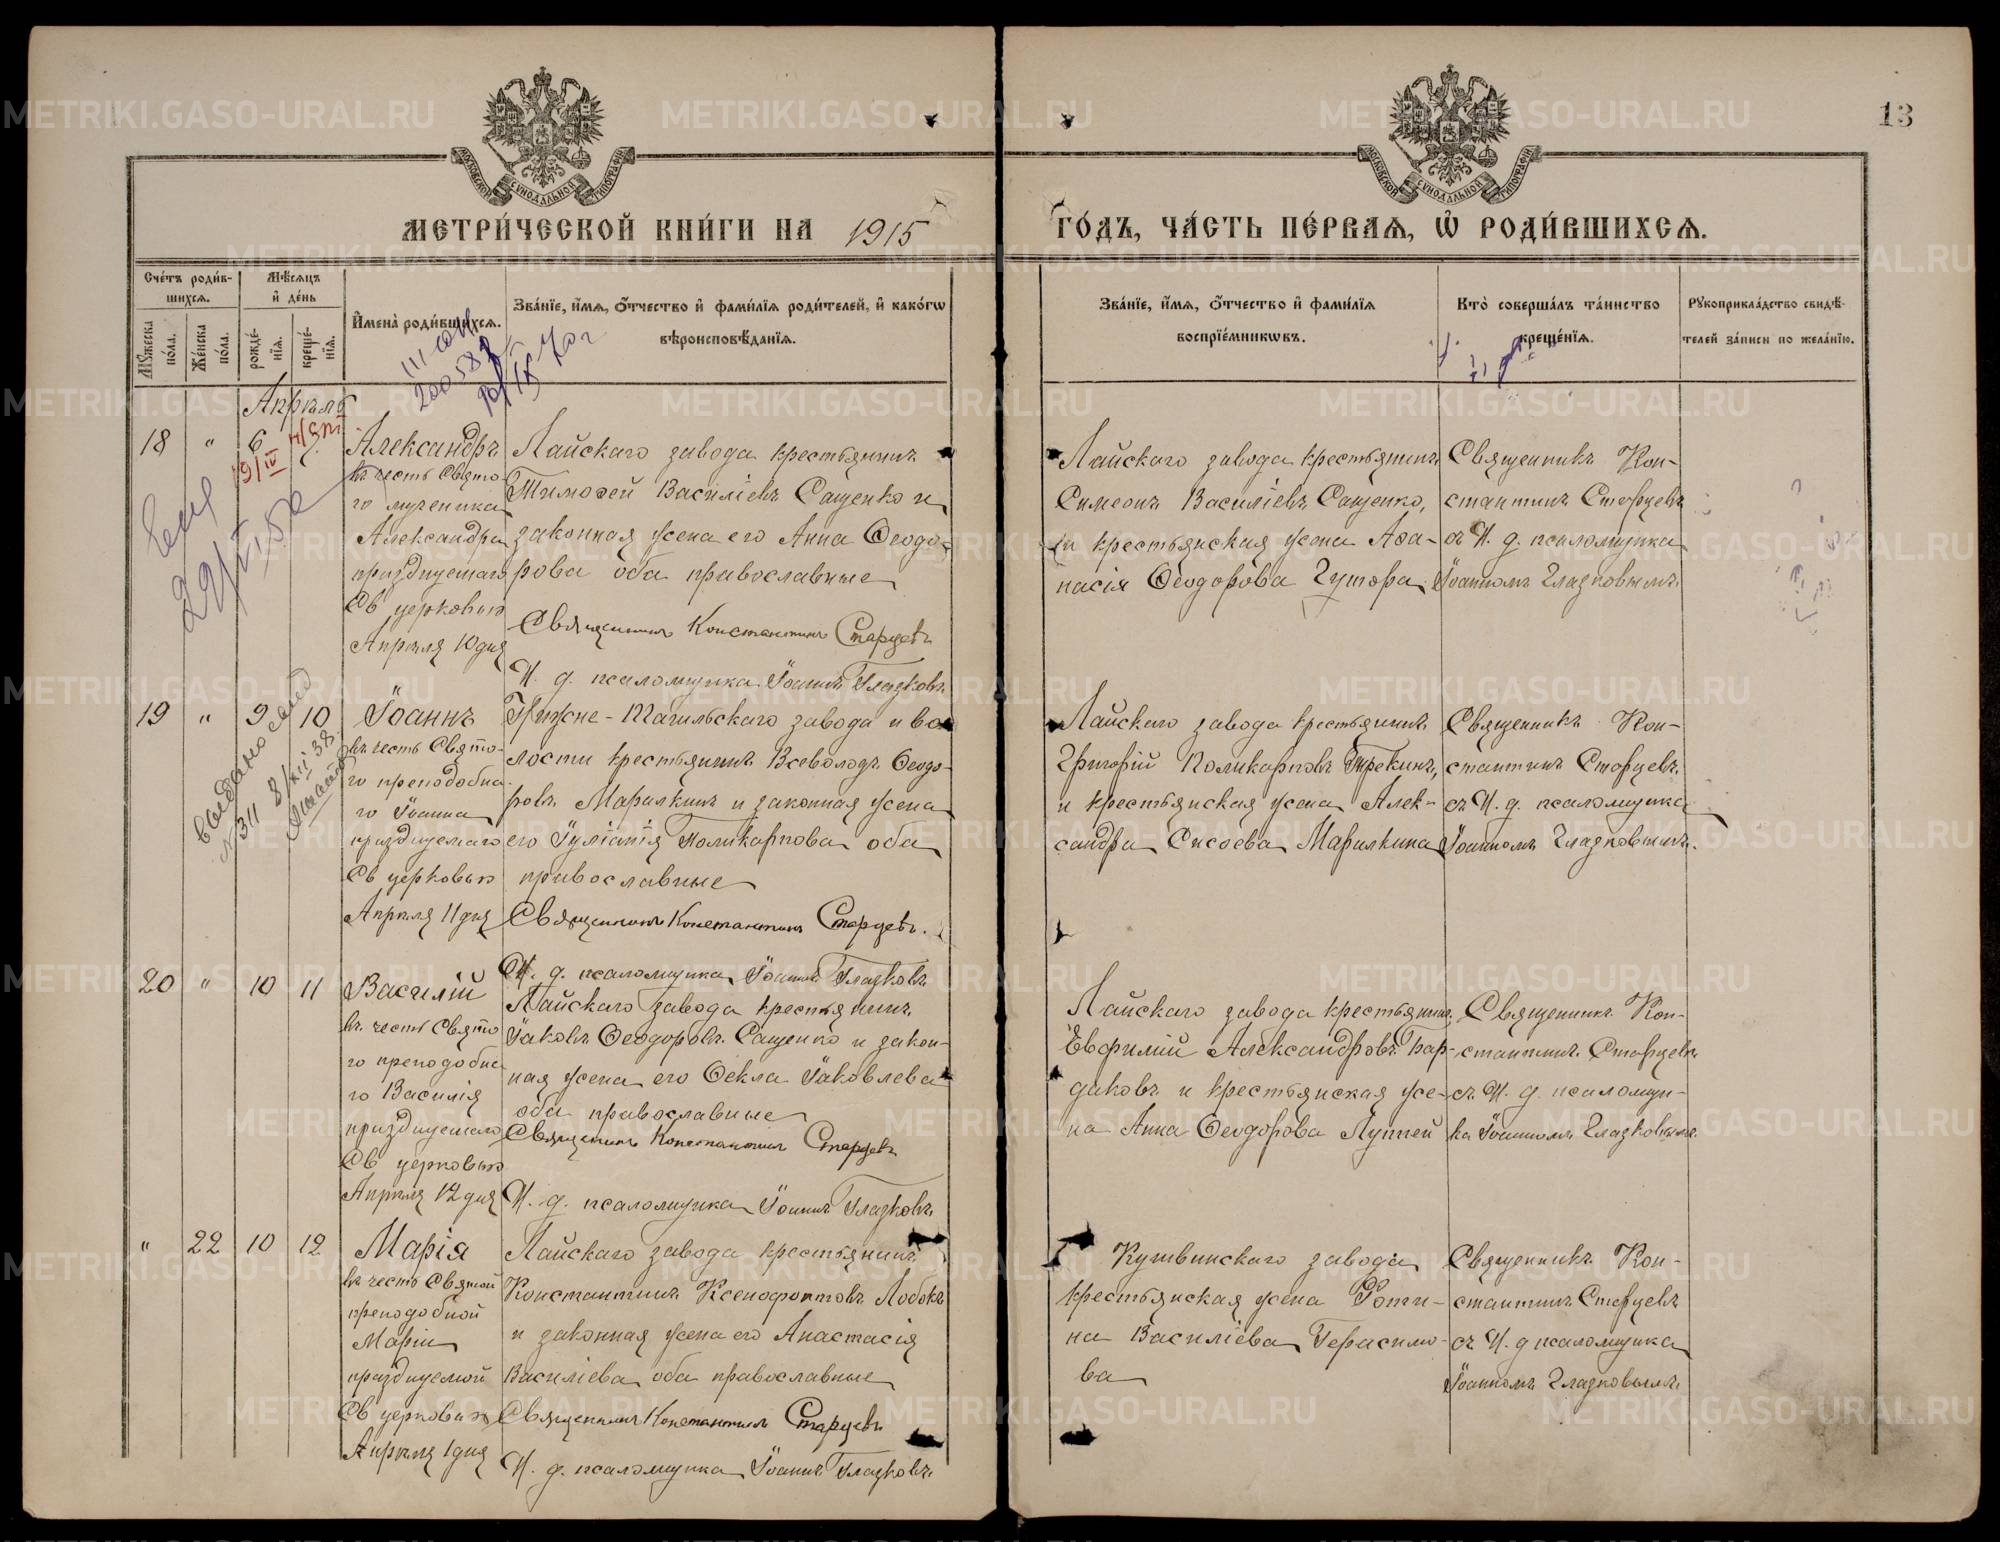 13
МЕТРИ́ЧЕСКОЙ КНИ́ГИ НА 1915
ГО́ДЪ, ЧА́СТЬ ПЕ́РВАЯ, Ѡ҆ РОДИ́ВШИХСЯ.
МОСКОВСКОЙ СѴНОДАЛЬНОЙ ТИПОГРАФІИ
МОСКОВСКОЙ СѴНОДАЛЬНОЙ ТИПОГРАФІИ
Сче́тъ роди́вшихся.
Мꙋ́жеска по́ла.
Же́нска по́ла.
Мѣ́сяцъ и҆ де́нь
рожде́нїя.
креще́нїя.
И҆мена̀ роди́вшихся.
Зва́нїе, и҆́мя, ѻ҆́тчество и҆ фами́лїя роди́телей, и҆ како́гѡ
вѣроисповѣ́данїя.
Зва́нїе, и҆́мя, ѻ҆́тчество и҆ фами́лїя
воспрїе́мникѡвъ.
Кто̀ соверша́лъ та́инство
креще́нїя.
Рꙋкоприкла́дство свидѣ́телей за́писи по жела́нїю.
Апрѣль
18 " 6
19/IV
Александръ
въ честь Свято-
го мученика
Александра
празднуемаго
Св церковью
Апрѣля 10 дня
Лайскаго завода крестьянинъ
Тимоѳей Василіевъ Сащенко и
законная жена его Анна Ѳеодо-
рова оба православные
Священникъ Константинъ Старцевъ
И. д. псаломщика Іоаннъ Глазковъ
Лайскаго завода крестьянинъ
Симеонъ Василіевъ Сащенко,
и крестьянская жена Аѳа-
насія Ѳеодорова Гутора
Священникъ Кон-
стантинъ Старцевъ
съ И. д. псаломщика
Іоанномъ Глазковымъ.
19 " 9 10
Іоаннъ
въ честь Свято-
го преподобна-
го Іоанна
празднуемаго
Св церковью
Апрѣля 11 дня
Нижне-Тагильскаго завода и во-
лости крестьянинъ Всеволодъ Ѳеодо-
ровъ Маралкинъ и законная жена
его Іуліанія Поликарпова оба
православные
Священникъ Константинъ Старцевъ.
И. д. псаломщика Іоаннъ Глазковъ
Лайскаго завода крестьянинъ
Григорій Поликарповъ Трекинъ,
и крестьянская жена Алек-
сандра Сисоева Маралкина
Священникъ Кон-
стантинъ Старцевъ.
съ И. д. псаломщика
Іоанномъ Глазковымъ.
выдано
№311 8/XII 38
20 " 10 11
Василій
въ честь Свято
го преподобна
го Василія
празднуемаго
Св церковью
Апрѣля 12 дня
Лайскаго завода крестьянинъ
Іаковъ Ѳеодоровъ Сащенко и закон-
ная жена его Ѳекла Іаковлева
оба православные
Священникъ Константинъ Старцевъ
И. д. псаломщика Іоаннъ Глазковъ
Лайскаго завода крестьянинъ
Евфимій Александровъ Бар-
даковъ и крестьянская же-
на Анна Ѳеодорова Луппей
Священникъ Кон-
стантинъ Старцевъ
съ И. д. псаломщи-
ка Іоанномъ Глазковымъ.
" 22 10 12
Марія
въ честь Святой
преподобной
Маріи
празднуемой
Св церковью
Апрѣля 1 дня
Лайскаго завода крестьянинъ
Константинъ Ксенофонтовъ Лобокъ
и законная жена его Анастасія
Василіева оба православные
Священникъ Константинъ Старцевъ
И. д. псаломщика Іоаннъ Глазковъ
Кушвинскаго завода
крестьянская жена Фоти-
на Василіева Герасимо-
ва
Священникъ Кон-
стантинъ Старцевъ
съ И. д псаломщика
Іоанномъ Глазковымъ.
METRIKI.GASO-URAL.RU